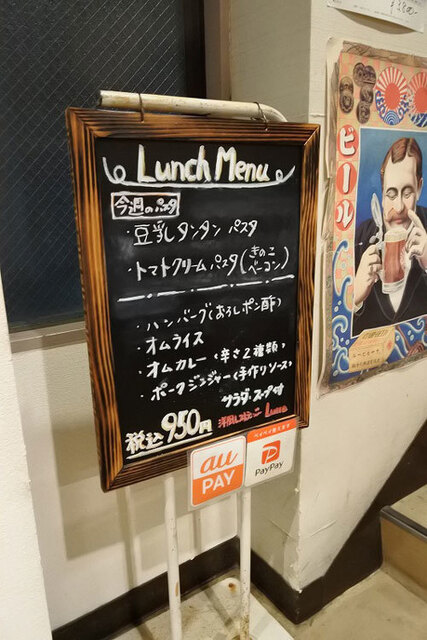 Lunch Menu
今週のパスタ
・豆乳タンタン パスタ
・トマトクリームパスタ(きのこ ベーコン)
・ハンバーグ(おろしポン酢)
・オムライス
・オムカレー(辛さ2種類)
・ポークジンジャー(手作りソース)
サラダ・スープ付
税込950円
Lunch
au
PAY
PayPay
ビール